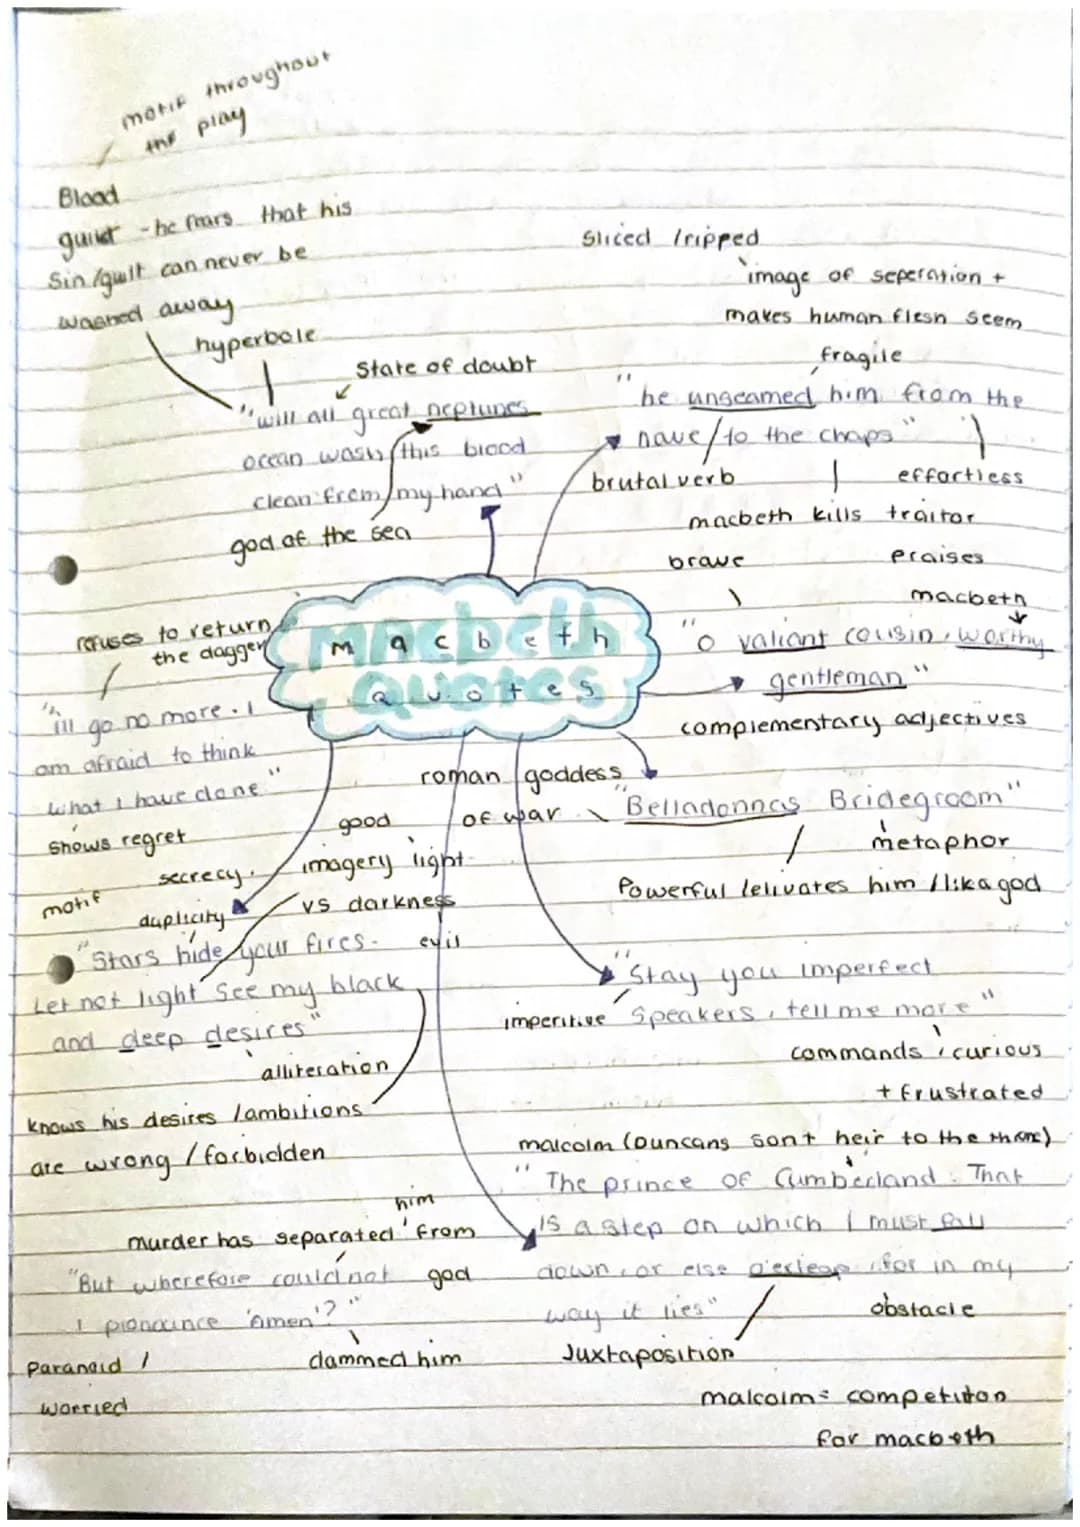 motif throughout
the play
Blood
guilt - he fears that his
Sin /guilt can never be
washed away
hyperbole
State of doubt
"will all great neptunes
ocean wash this blood
clean from my hand"
god of the sea
Sliced /ripped
image of seperation +
makes human flesh seem
fragile
"he unseamed him from the
nave to the chaps"
brutal verb
effortless
macbeth kills traitor
brave
praises
macbeth
"O valiant cousin, worthy
gentleman"
complementary adjectives
macbeth
Quotes
refuses to return
the dagger
"ill go no more. I
am afraid to think
what I have done"
shows regret
roman goddess
of war
"Belladonnas Bridegroom"
metaphor
Powerful /elivates him /like a god
good
imagery light
vs darkness
evil
secrecy.
motif
duplicity
"Stars hide your fires.
Let not light see my black
and deep desires"
alliteration
knows his desires /ambitions
are wrong /forbidden
"Stay you imperfect
Speakers, tell me more"
imperitive
commands, curious
+ frustrated
malcolm (Duncans son + heir to the throne)
"The prince of Cumberland: That
is a step on which I must fall
down, or else o'erleap, for in my
way it lies"
obstacle
Juxtaposition
malcolm = competiton
for macbeth
him
murder has separated from
god
"But wherefore could not
I pronounce 'Amen'?"
Paranoid /
worried
dammed him